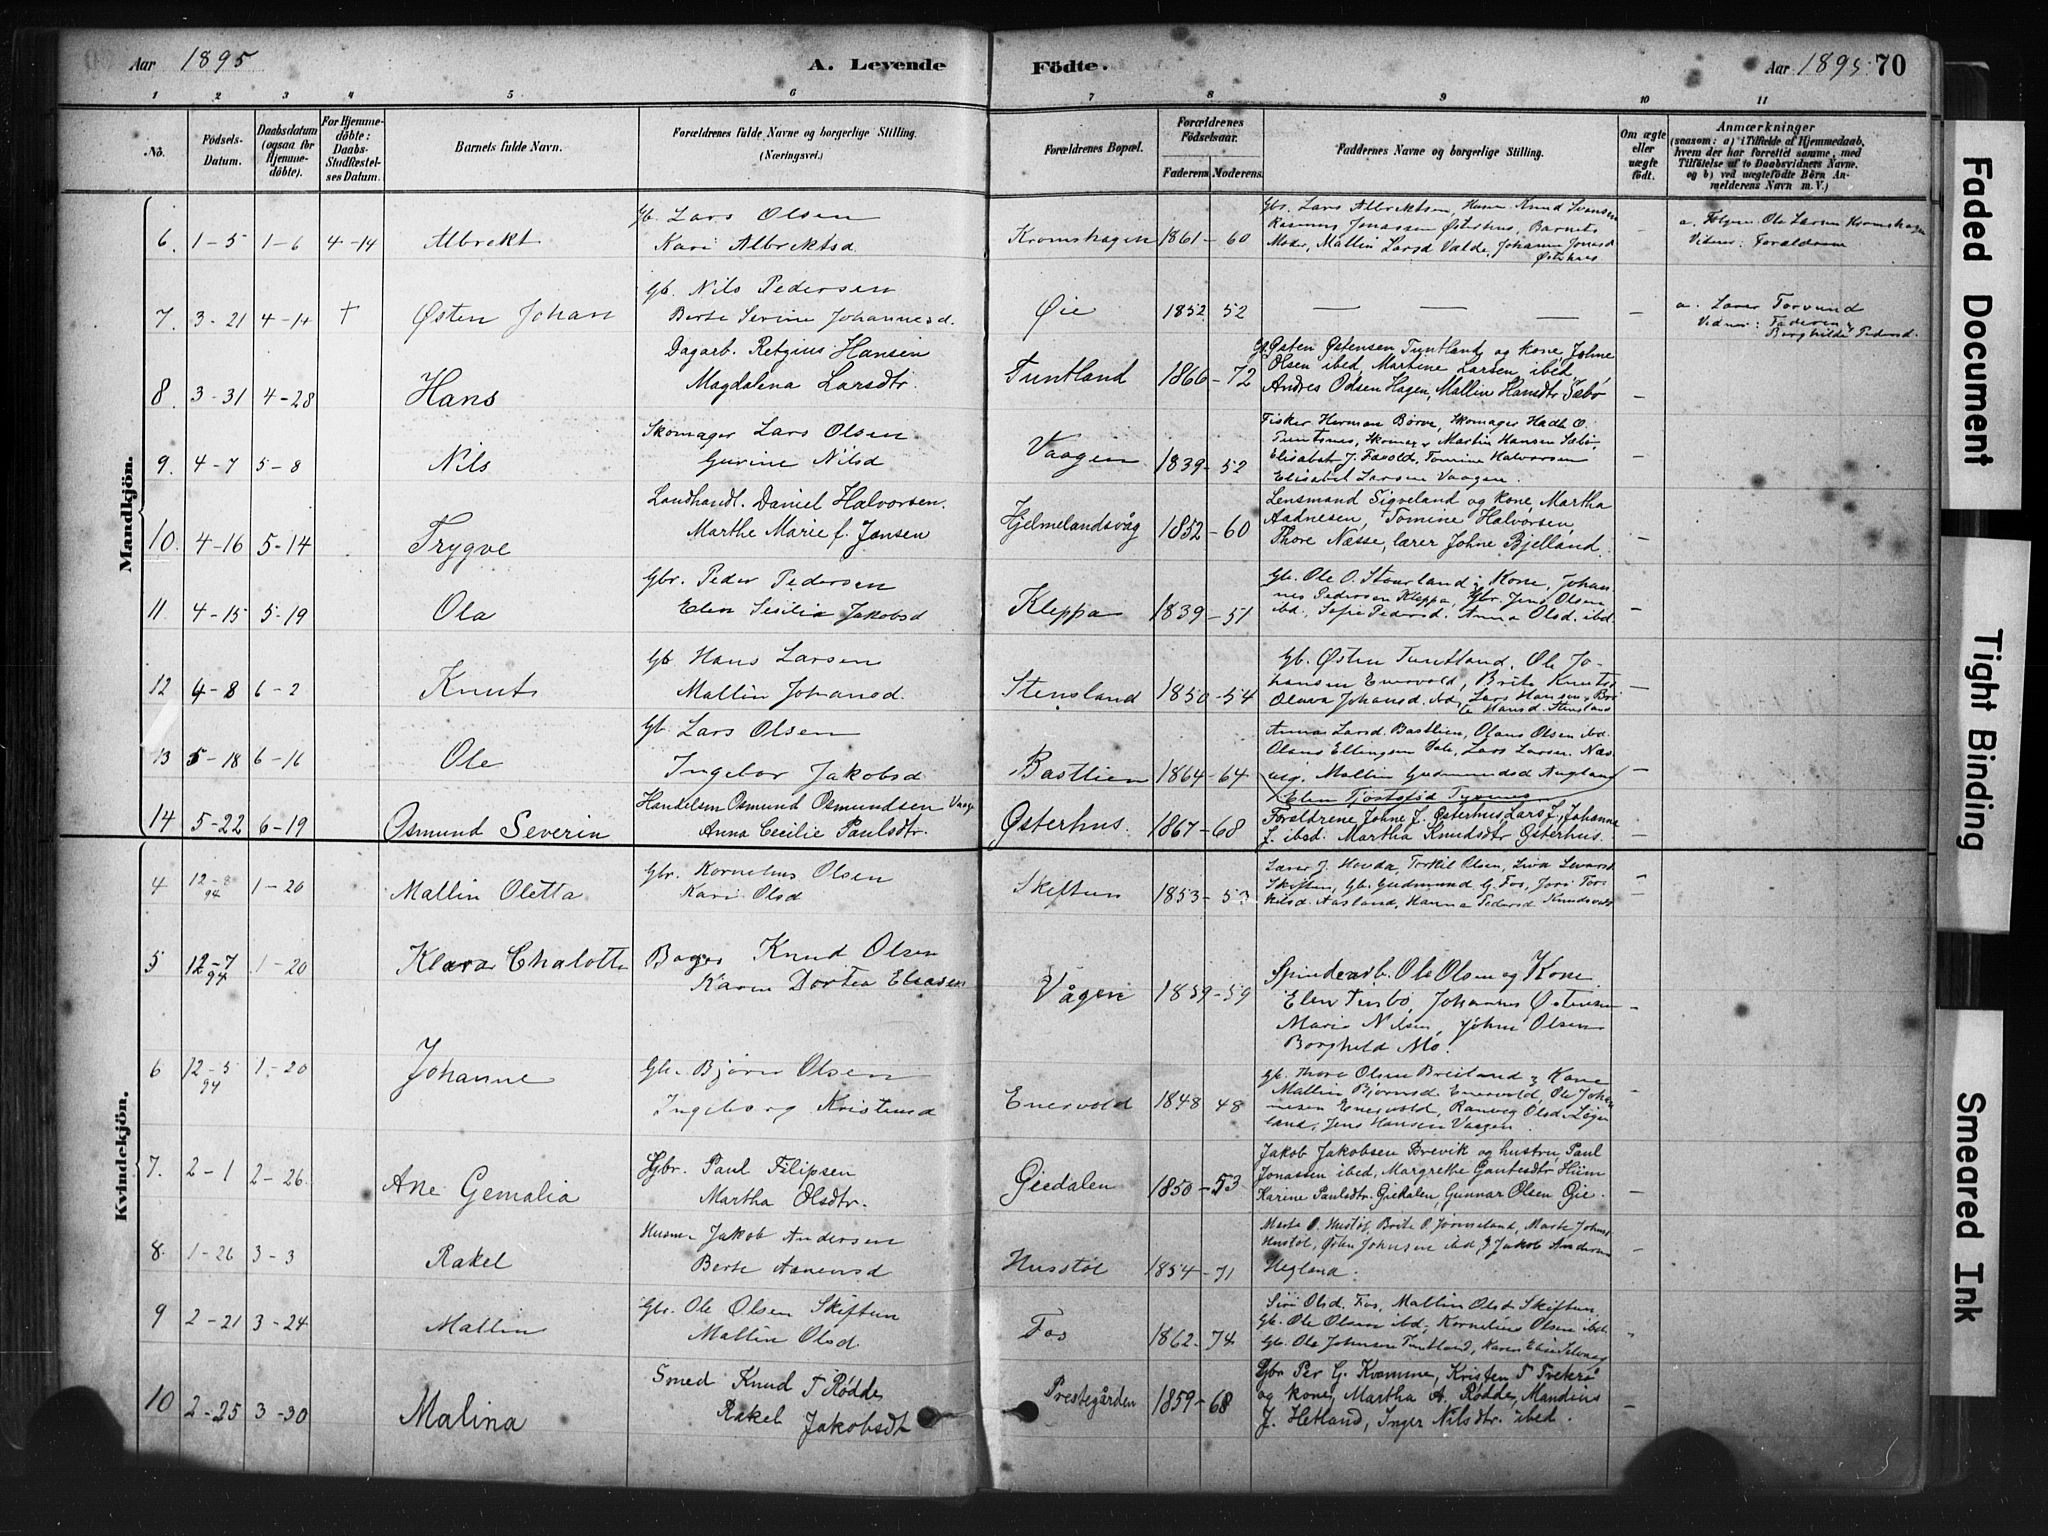 Aar 1895 A. Levende Födte. Aar 1895 70
1 2 3 4 5 6 7 8 9 10 11
No. Födsels-Datum. Daabsdatum (ogsaa for Hjemmedöbte). For Hjemmedöbte: Daabs-Stadfæstelses Datum. Barnets fulde Navn. Forældrenes fulde Navne og borgerlige Stilling. (Næringsvei.) Forældrenes Bopæl. Forældrenes Födselsaar. Faderens Moderens. Faddernes Navne og borgerlige Stilling. Om ægte eller uægte födt. Anmærkninger (saasom: a) i Tilfælde af Hjemmedaab, hvem der har forrettet samme, med Tilföielse af to Daabsvidners Navne. og b) ved uægtefödte Börn Anmelderens Navn m. V.)
Mandkjön.
6. 1-5 1-6 4-14 Albrekt
Gb. Lars Olsen
Kari Albrektsd
Kromshagen 1861-60
Gbr. Lars Albrektsen, Knud Svensen
Rasmus Jonassen Østerhus, Barnets
Moder, Mallin Larsd Valde, Johanne Jonasd
Østerhus
a. Ole Larsen Kromshagen
Vidner: Forældrene
7. 3-21 4-14 † Østen Johan
Gb. Nils Pedersen
Berte Serine Johannesd.
Øie 1852 52
— — —
a. Lærer Torvund
Vidner: Faderen &
Borghilde Pedersd.
8. 3-31 4-28 Hans
Dagarb. Retgius Hansen
Magdalena Larsdtr.
Tuntland 1866-72
Gb Østen Østensen Tuntland og kone, Johne
Olsen ibed, Martine Larsen ibed,
Andres Odsen Hagen, Mallin Hansdtr Sæbö
9. 4-7 5-8 Nils
Skomager Lars Olsen
Gurine Nilsd
Vaagen 1839-52
Fisker Herman Börve, Skomager Hadle O.
Tuntsnes, Martin Hansen Sæbö,
Elisabet J. Tomine Halvorsen
Elisabet Larsen Vaagen.
10. 4-16 5-14 Trygve
Landhandl. Daniel Halvorsen.
Marthe Marie f. Jansen
Hjelmelandsvåg 1852-60
Lensmand Sigveland og kone, Martha
Aadnesen, Tomine Halvorsen,
Thore Næsse, lærer Johne Bjelland.
11 4-15 5-19 Ola
Gbr. Peder Pedersen
Elen Sesilia Jakobsd
Kleppa 1839-51
Gb. Ole O. Stourland & Kone, Johan
nes Pedersen Kleppa, Gbr. Jens Olsen
ibd, Sofie Pedersd. Anna Olsd. ibd.
12 4-8 6-2 Knut
Gb Hans Larsen
Mallin Johansd.
Stensland 1850-54
Gb. Østen Tuntland, Ole Jo-
hansen Enervold, Brite Knuts
Olava Johansd. ibd, Lars Hansen & Bri
te Hansd. Stensland
13 5-18 6-16 Ole
Gb. Lars Olsen
Ingebor Jakobsd
Bastlien 1864-64
Anna Larsd. Bastlien, Olaus Olsen ibd.
Olaus Ellingsen Lars Larsen Næs
Mallin Gudmundsd
Elen
14 5-22 6-19 Osmund Severin
Handelsm Osmund Osmundsen Vaage
Anna Cecilie Paulsdtr.
Østerhus. 1867-68
Forældrene, Johne J. Østerhus, Lars J., Johanna
J. ibed. Martha Knudsdtr Østerhus.
Kvindekjön.
4 12-8 94 1-20 Mallin Oletta
Gbr. Kornelius Olsen
Kari Olsd
Skiftun 1853-53
Lærer J. Hovda, Torkil Olsen,
Skiftun, Gb. Gudmund G. Fos, Jori Tor
kilsd. Aasland, Hanna Pedersd Knudsvik
5 12-7 94 1-20 Klara Chalotte
Bager Knud Olsen
Karen Dortea Eliasen
Vågen 1859-59
Ole Olsen og Kone
Elen Johannes Østensen
Marie Nilsen, Johne Olsen
Borghild Mo.
6 12-5 94 1-20 Johanne
Gb. Bjørn Olsen
Ingeborg Kristensd
Enervold 1848 48
Gb. Thore Olsen Breiland & Kone
Mallin Bjørnsd. Enervold, Ole Johan
nesen Enervold, Ranveg Olsd. Leger
land, Jens Hansen Vaagen.
7. 2-1 2-26 Ane Gemalia
Gbr. Paul Filipsen
Martha Olsdtr.
Giedalen 1850-53
Jakob Jakobsen Brevik og hustru, Paul
Jonassen ibed, Margrethe Gautesdtr Hüm
Karine Paulsdtr. Giedalen, Gunnar Olsen Øie.
8. 1-26 3-3 Rakel
Husm Jakob Andersen
Berte Aanensd
Husstøl 1854-71
Marta O. Hustøl, Brite P. Marte Johns
Hustøl, John Johnsen ibd, & Jakob Andersen
Hegland.
9 2-21 3-24 Mallin
Gbr. Ole Olsen Skiftun
Mallin Olsd
Fos 1862-74
Siri Olsd. Fos, Mallin Olsd Skiftun,
Gb. Ole Olsen ibd, Kornelius Olsen ibd.
Gb. Ole Johnsen Tuntland, Karen Elise
10 2-25 3-30 Malina
Smed Knud T Rödde
Rakel Jakobsdt
Prestegården 1859-68
Gbr Per G. Kvamme, Kristen T Tveterå
og kone, Martha A. Rödde, Mandius
J. Hetland, Inger Nilsdtr. ibed.
Faded Document
Tight Binding
Smeared Ink